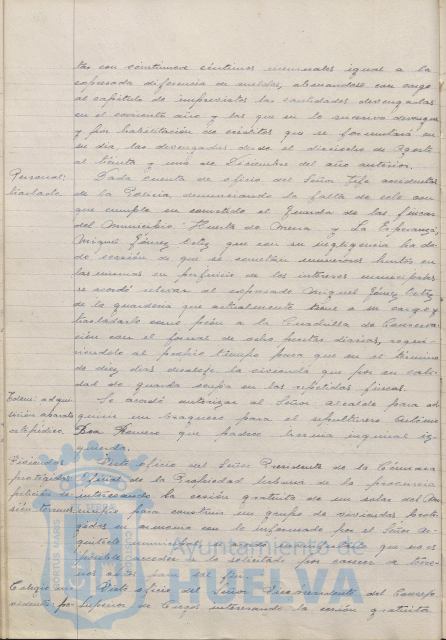 tas con cincuenta céntimos mensuales igual a la
expresada diferencia de sueldos, abonandose con cargo
al capítulo de imprevistos las cantidades devengadas
en el corriente año y las que en lo sucesivo devengue
y por habilitación de créditos que se formulará en
su día, las devengadas desde el dieciocho de Agosto
al treinta y uno de Diciembre del año anterior.
Personal: Dada cuenta de oficio del Señor Jefe accidental
traslado. de la Policía, denunciando la falta de celo con
que cumple su cometido el Guarda de las fincas
del Municipio "Huerta de Mena" y "La Esperanza",
Miguel Gómez, que con su negligencia ha da-
do ocasión de que se cometan numerosos hurtos en
las mismas en perjuicio de los intereses municipales
se acordó relevar al expresado Miguel Gómez
de la guardería que actualmente tiene a su cargo y
trasladarlo como peón a la Cuadrilla de Conserva-
ción con el jornal de ocho pesetas diarias, requi-
riéndole al propio tiempo para que en el término
de diez días desaloje la vivienda que por su cali-
dad de guarda ocupa en las repetidas fincas.
Idem: adqui- Se acordó autorizar al Señor Alcalde para ad-
sición aparato quirir un braguero para el sepulturero Antonio
ortopédico. Romero que padece hernia inguinal iz-
quierda.
Viviendas Visto oficio del Señor Presidente de la Cámara
protegidas: Oficial de la Propiedad Urbana de la provincia
petición de interesando la cesión gratuita de un solar del Mu-
nicipio para construir un grupo de viviendas prote-
gidas en armonía con lo informado por el Señor Ar-
quitecto municipal se acordó contestarle que no es
posible acceder a lo solicitado por carecer a
para del fin.
Colegio Visto oficio del Señor Vicepresidente del Consejo
Superior de Ciegos interesando la cesión gratuita
Ayuntamiento de
HUELVA